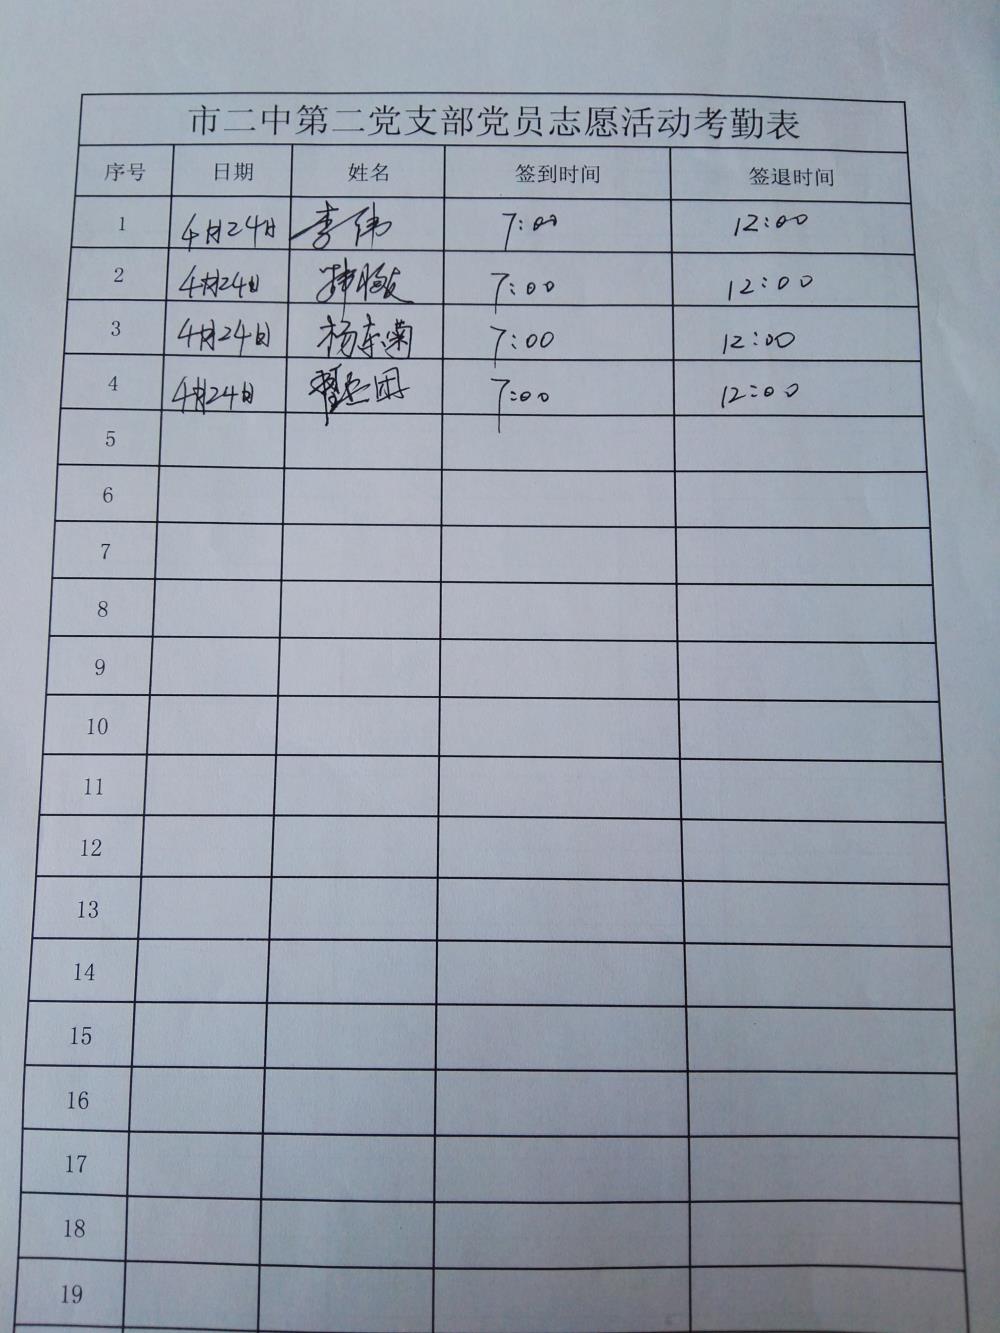 市二中第二党支部党员志愿活动考勤表
序号 日期 姓名 签到时间 签退时间
1 4月24日 李伟 7:00 12:00
2 4月24日 7:00 12:00
3 4月24日 杨东菊 7:00 12:00
4 4月24日 7:00 12:00
5
6
7
8
9
10
11
12
13
14
15
16
17
18
19